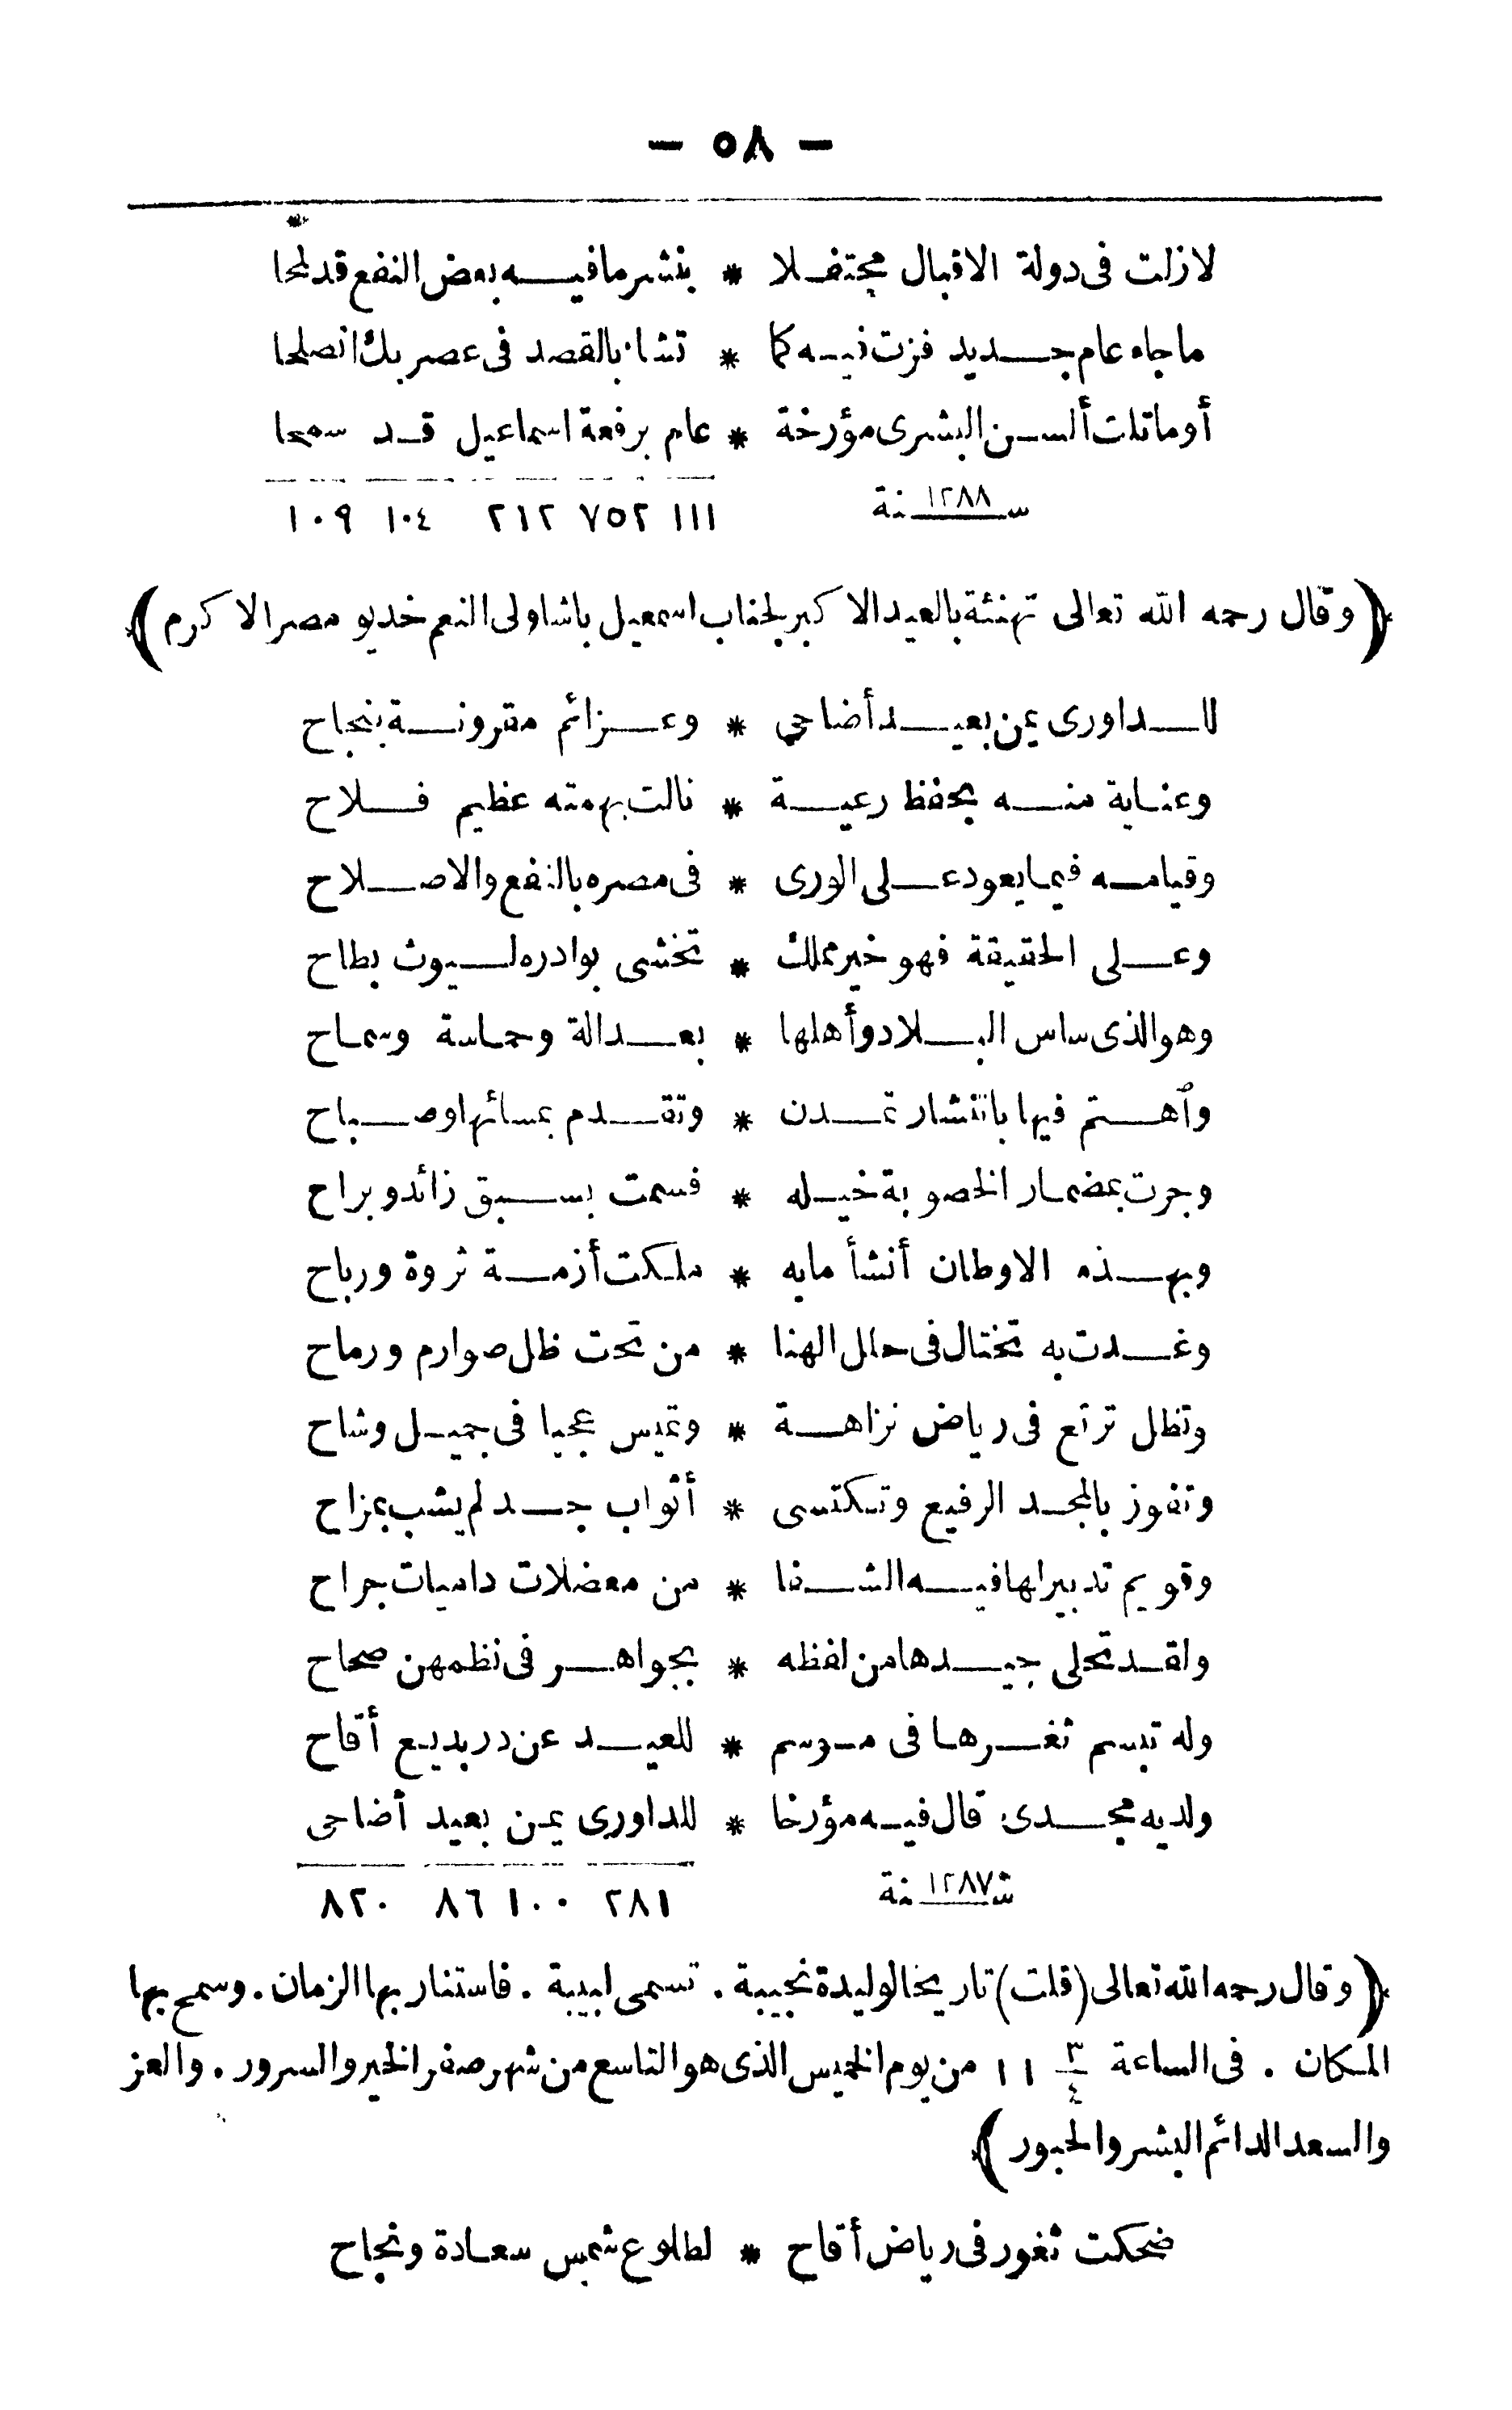 — ٥٨ —
لازلت فى دولة الاقبال محتفلا * بنشر مافيه بعض النفع قد لمحا
ماجاه عام جديد فزت فيه كما * تشاء بالقصد فى عصر بك انصلحا
أوماتلت ألسن البشرى مؤرخة * عام برفعة اسماعيل قد سمحا
سنة ١٢٨٨ ١١١ ٧٥٢ ٢١٢ ١٠٤ ١٠٩
﴿ وقال رحمه الله تعالى تهنئة بالعيد الاكبر لجناب اسمعيل باشا ولى النعم خديو مصر الاكرم ﴾
للداورى يمن بعيد أضاحي * وعزائم مقرونة بنجاح
وعناية منه بحفظ رعية * نالت بهمته عظيم فلاح
وقيامه فيما يعود على الورى * فى مصره بالنفع والاصلاح
وعلى الحقيقة فهو خير مملك * تخشى بوادره ليوث بطاح
وهو الذى ساس البلاد وأهلها * بعدالة وحماسة وسماح
وٱهتم فيها بانتشار تمدن * وتقدم بمسائها وصباح
وجرت بمضمار الخصوبة خيله * فسمت بسبق زائد وبراح
وبهذه الاوطان أنشأ مابه * ملكت أزمة ثروة ورباح
وغدت به تختال فى حلل الهنا * من تحت ظل صوارم ورماح
وتظل ترتع فى رياض نزاهة * وتميس عجبا فى جميل وشاح
وتفوز بالمجد الرفيع وتكتسى * أثواب جد لم يشب بمزاح
وقويم تدبير لها فيه الشفا * من معضلات داميات جراح
ولقد تحلى جيدها من لفظه * بجواهر فى نظمهن صحاح
وله تبسم ثغرها فى موسم * للعيد عن در بديع أقاح
ولديه مجدى قال فيه مؤرخا * للداورى يمن بعيد أضاحى
سنة ١٢٨٧ ٢٨١ ١٠٠ ٨٦ ٨٢٠
﴿ وقال رحمه الله تعالى (قلت) تاريخا لوليدة نجيبة . تسمى لبيبة . فاستنار بها الزمان . وسمح بها
المكان . فى الساعة ٣/٤ ١١ من يوم الخميس الذى هو التاسع من شهر صفر الخير والسرور . والعز
والسعد الدائم البشر والحبور ﴾
ضحكت ثغور فى رياض أقاح * لطلوع شمس سعادة ونجاح